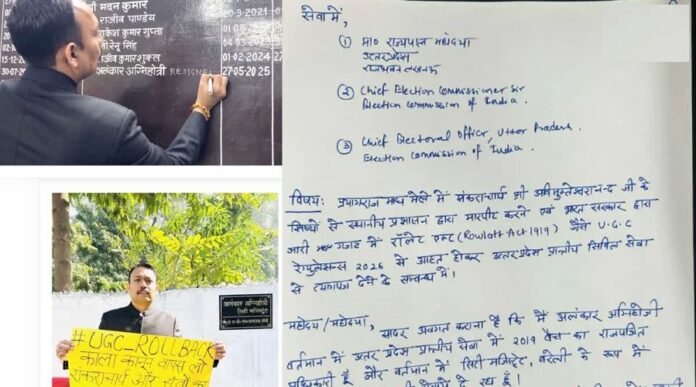 श्री मदन कुमार
राजीव पाण्डेय
20-9-2021
राकेश कुमार गुप्ता
रेनू सिंह
15-12-20
राजीव कुमार शुक्ल
01-02-2024
30-07-20
अलंकार अग्निहोत्री RESIGNED
27-05-2025
अलंकार अग्निहोत्री
सिटी मजिस्ट्रेट
#UGC_ROLLBACK
काला कानून वापस लो
शंकराचार्य और संतों का
सेवा में,
① मा0 राज्यपाल महोदया
उत्तर प्रदेश
राजभवन लखनऊ
② Chief Election Commissioner Sir
Election Commission of India.
③ Chief Electoral Officer, Uttar Pradesh
Election Commission of India.
विषय: प्रयागराज माघ मेले में शंकराचार्य श्री अविमुक्तेश्वरानन्द जी के
शिष्यों से स्थानीय प्रशासन द्वारा मारपीट करने एवं भारत सरकार द्वारा
जारी गजट में रॉलेट एक्ट (Rowlatt Act 1919) जैसे U.G.C
रेगुलेसन्स 2026 से आहत होकर उत्तर प्रदेश प्रान्तीय सिविल सेवा
से त्यागपत्र देने के सम्बन्ध में।
महोदय/महोदया,
सादर अवगत कराना है कि मैं अलंकार अग्निहोत्री
वर्तमान में उत्तर प्रदेश प्रान्तीय सेवा में 2019 बैच का राजपत्रित
अधिकारी हूँ और वर्तमान में सिटी मजिस्ट्रेट, बरेली के रूप में